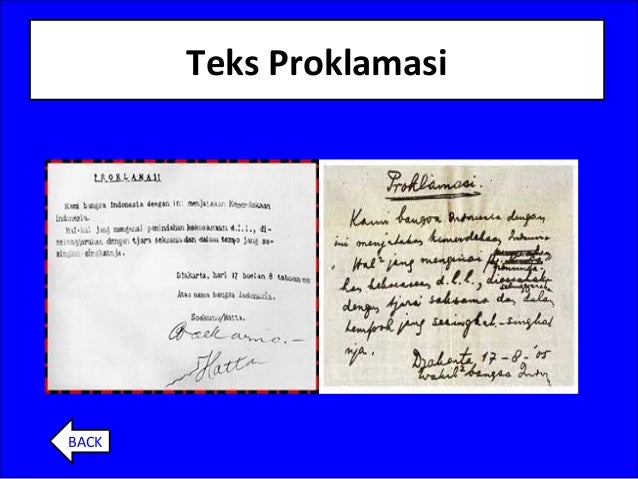 Teks Proklamasi
PROKLAMASI
Kami bangsa Indonesia dengan ini menjatakan Kemerdekaan
Indonesia.
Hal-hal jang mengenai pemindahan kekoeasaan d.l.l., di-
selenggarakan dengan tjara seksama dan dalam tempo jang se-
singkat-singkatnja.
Djakarta, hari 17 boelan 8 tahoen 05
Atas nama bangsa Indonesia.
Soekarno/Hatta.
Soekarno.-
Hatta
Proklamasi.
Kami bangsa Indonesia dengan
ini menjatakan kemerdekaan Indonesia
Hal² jang mengenai
kekoeasaan d.l.l.,
dengan tjara saksama dan dalam
tempoh jang sesingkat-singkat
nja.
Djakarta 17-8-'05
Wakil² bangsa Indon
BACK